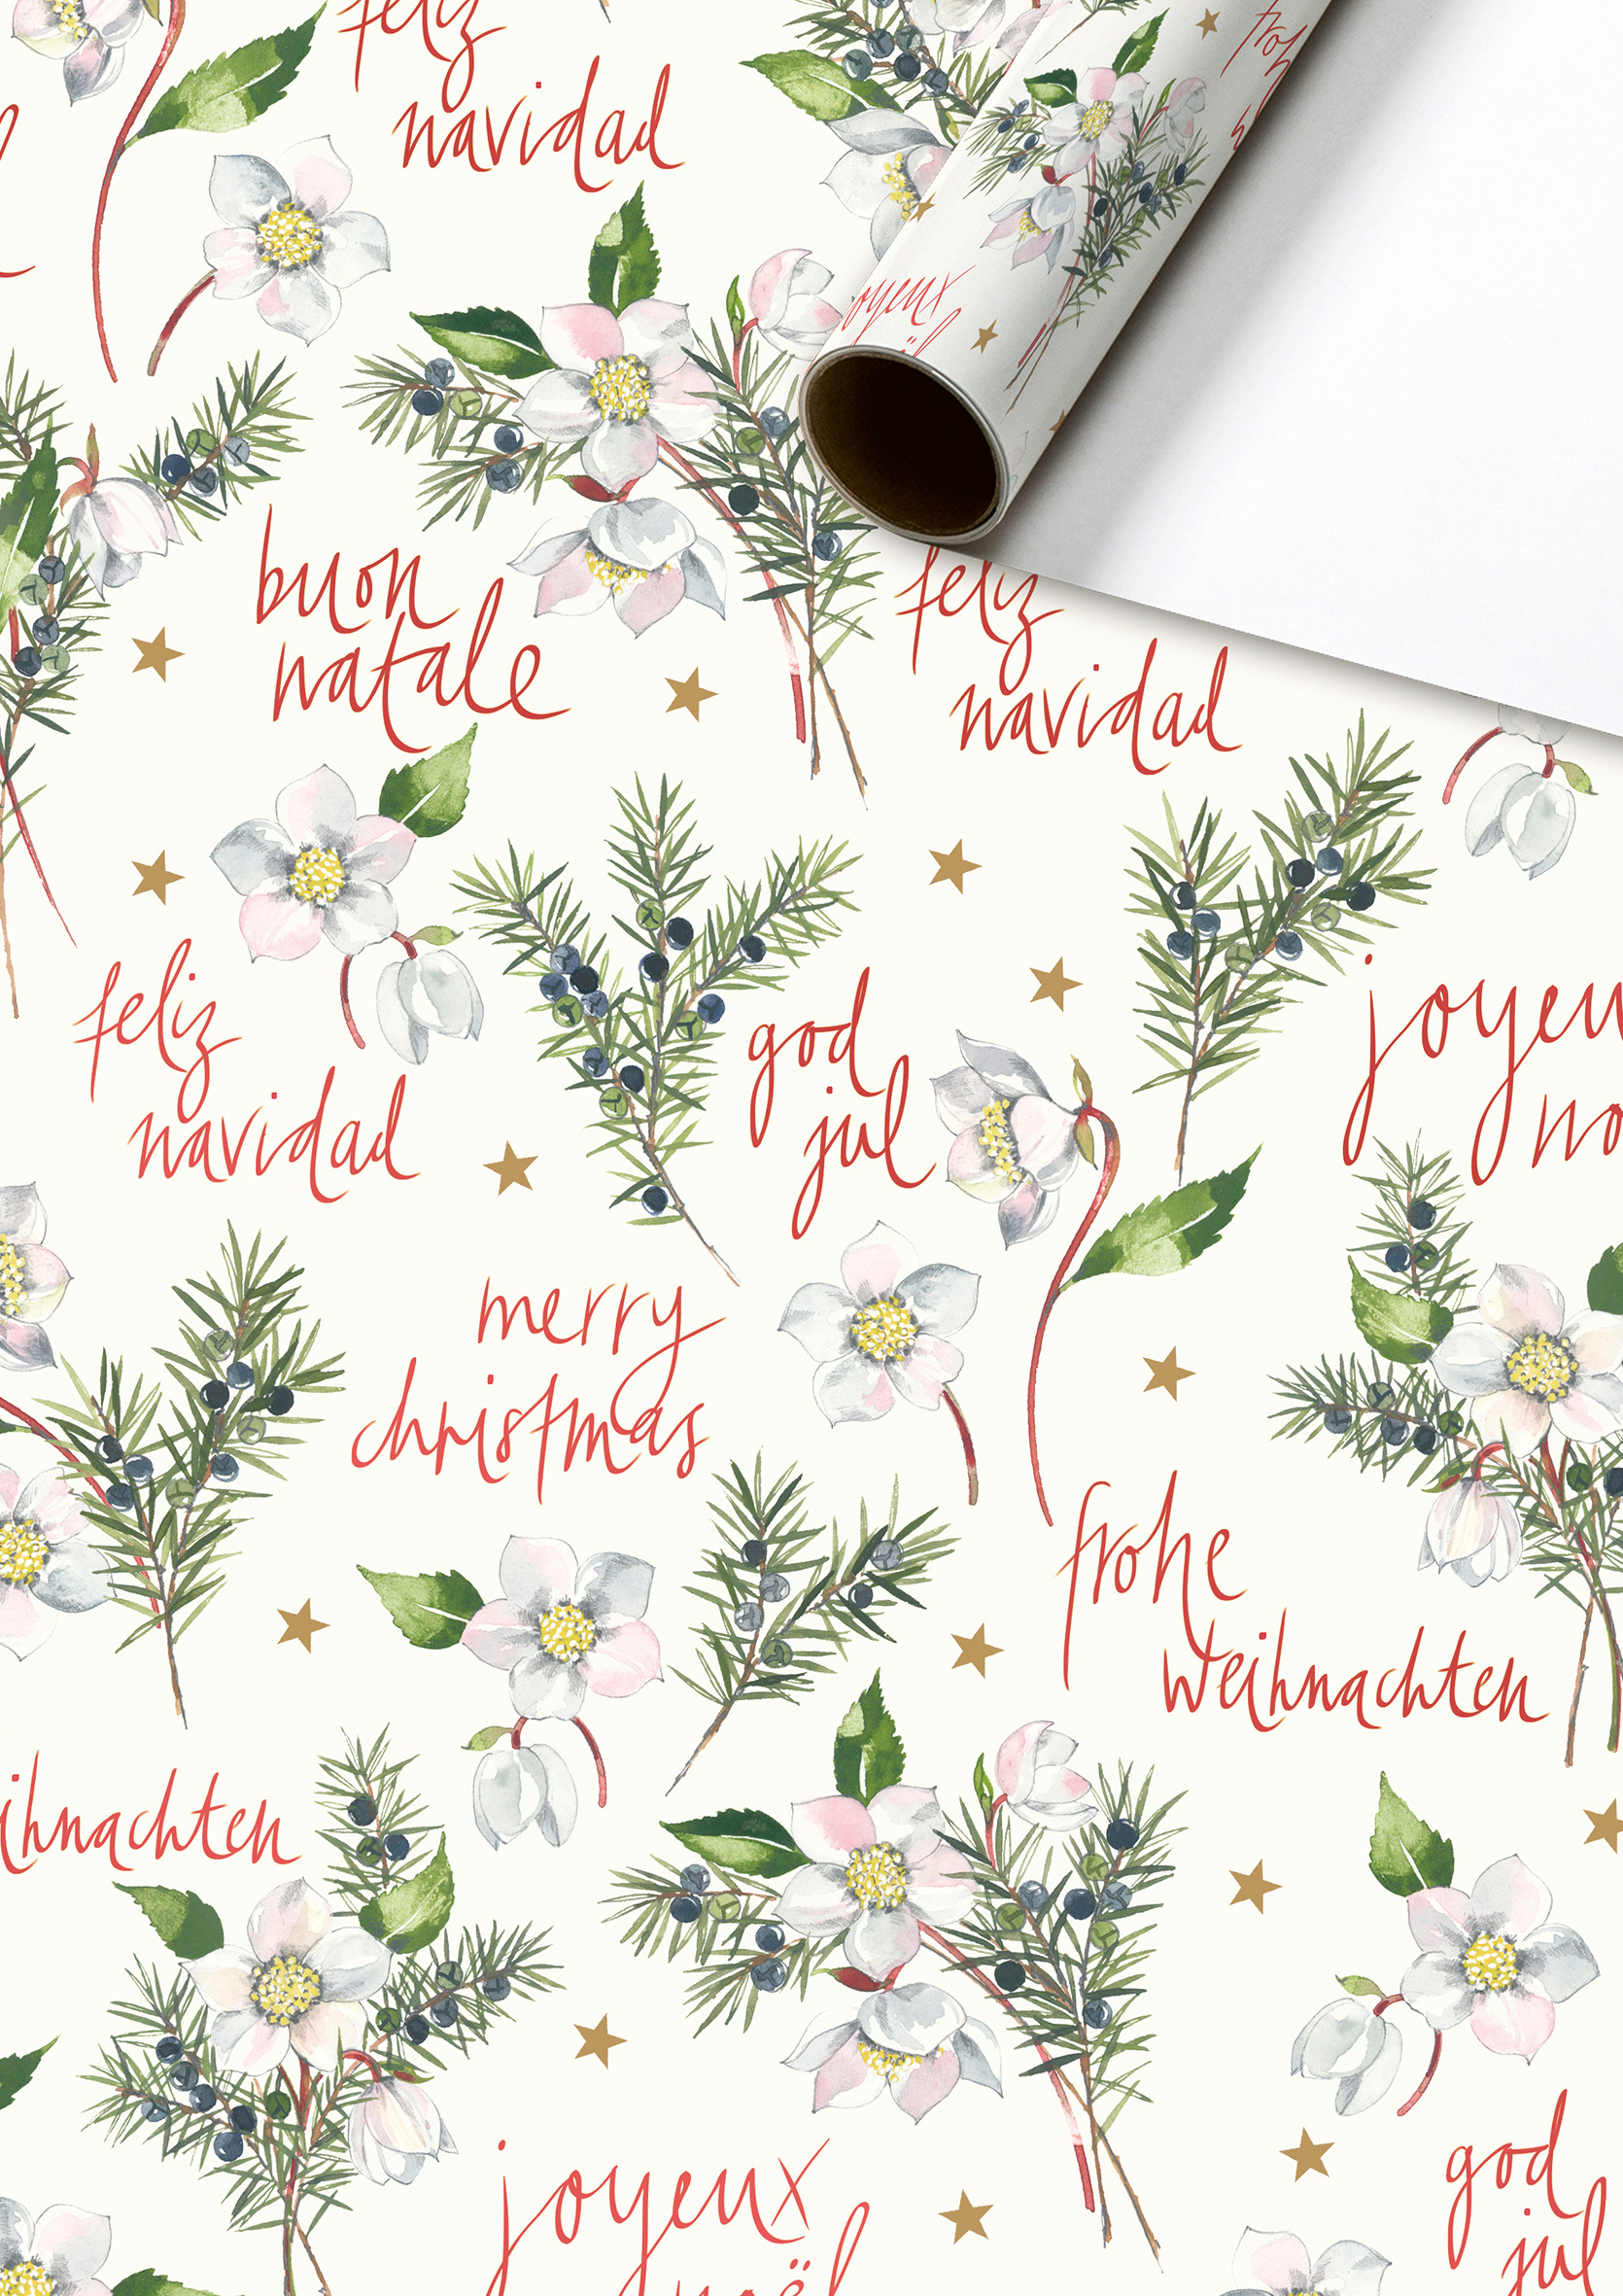 feliz
navidad
joyeux
buon
natale
feliz
navidad
feliz
navidad
god
jul
merry
christmas
frohe
weihnachten
joyeux
noël
god
jul